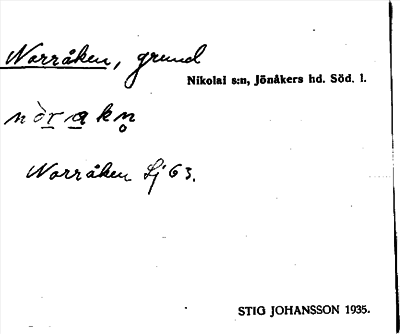 Norråken, grund
Nikolai s:n, Jönåkers hd. Söd. l.
n ò r a k n̥
Norråken Sj 63.
STIG JOHANSSON 1935.